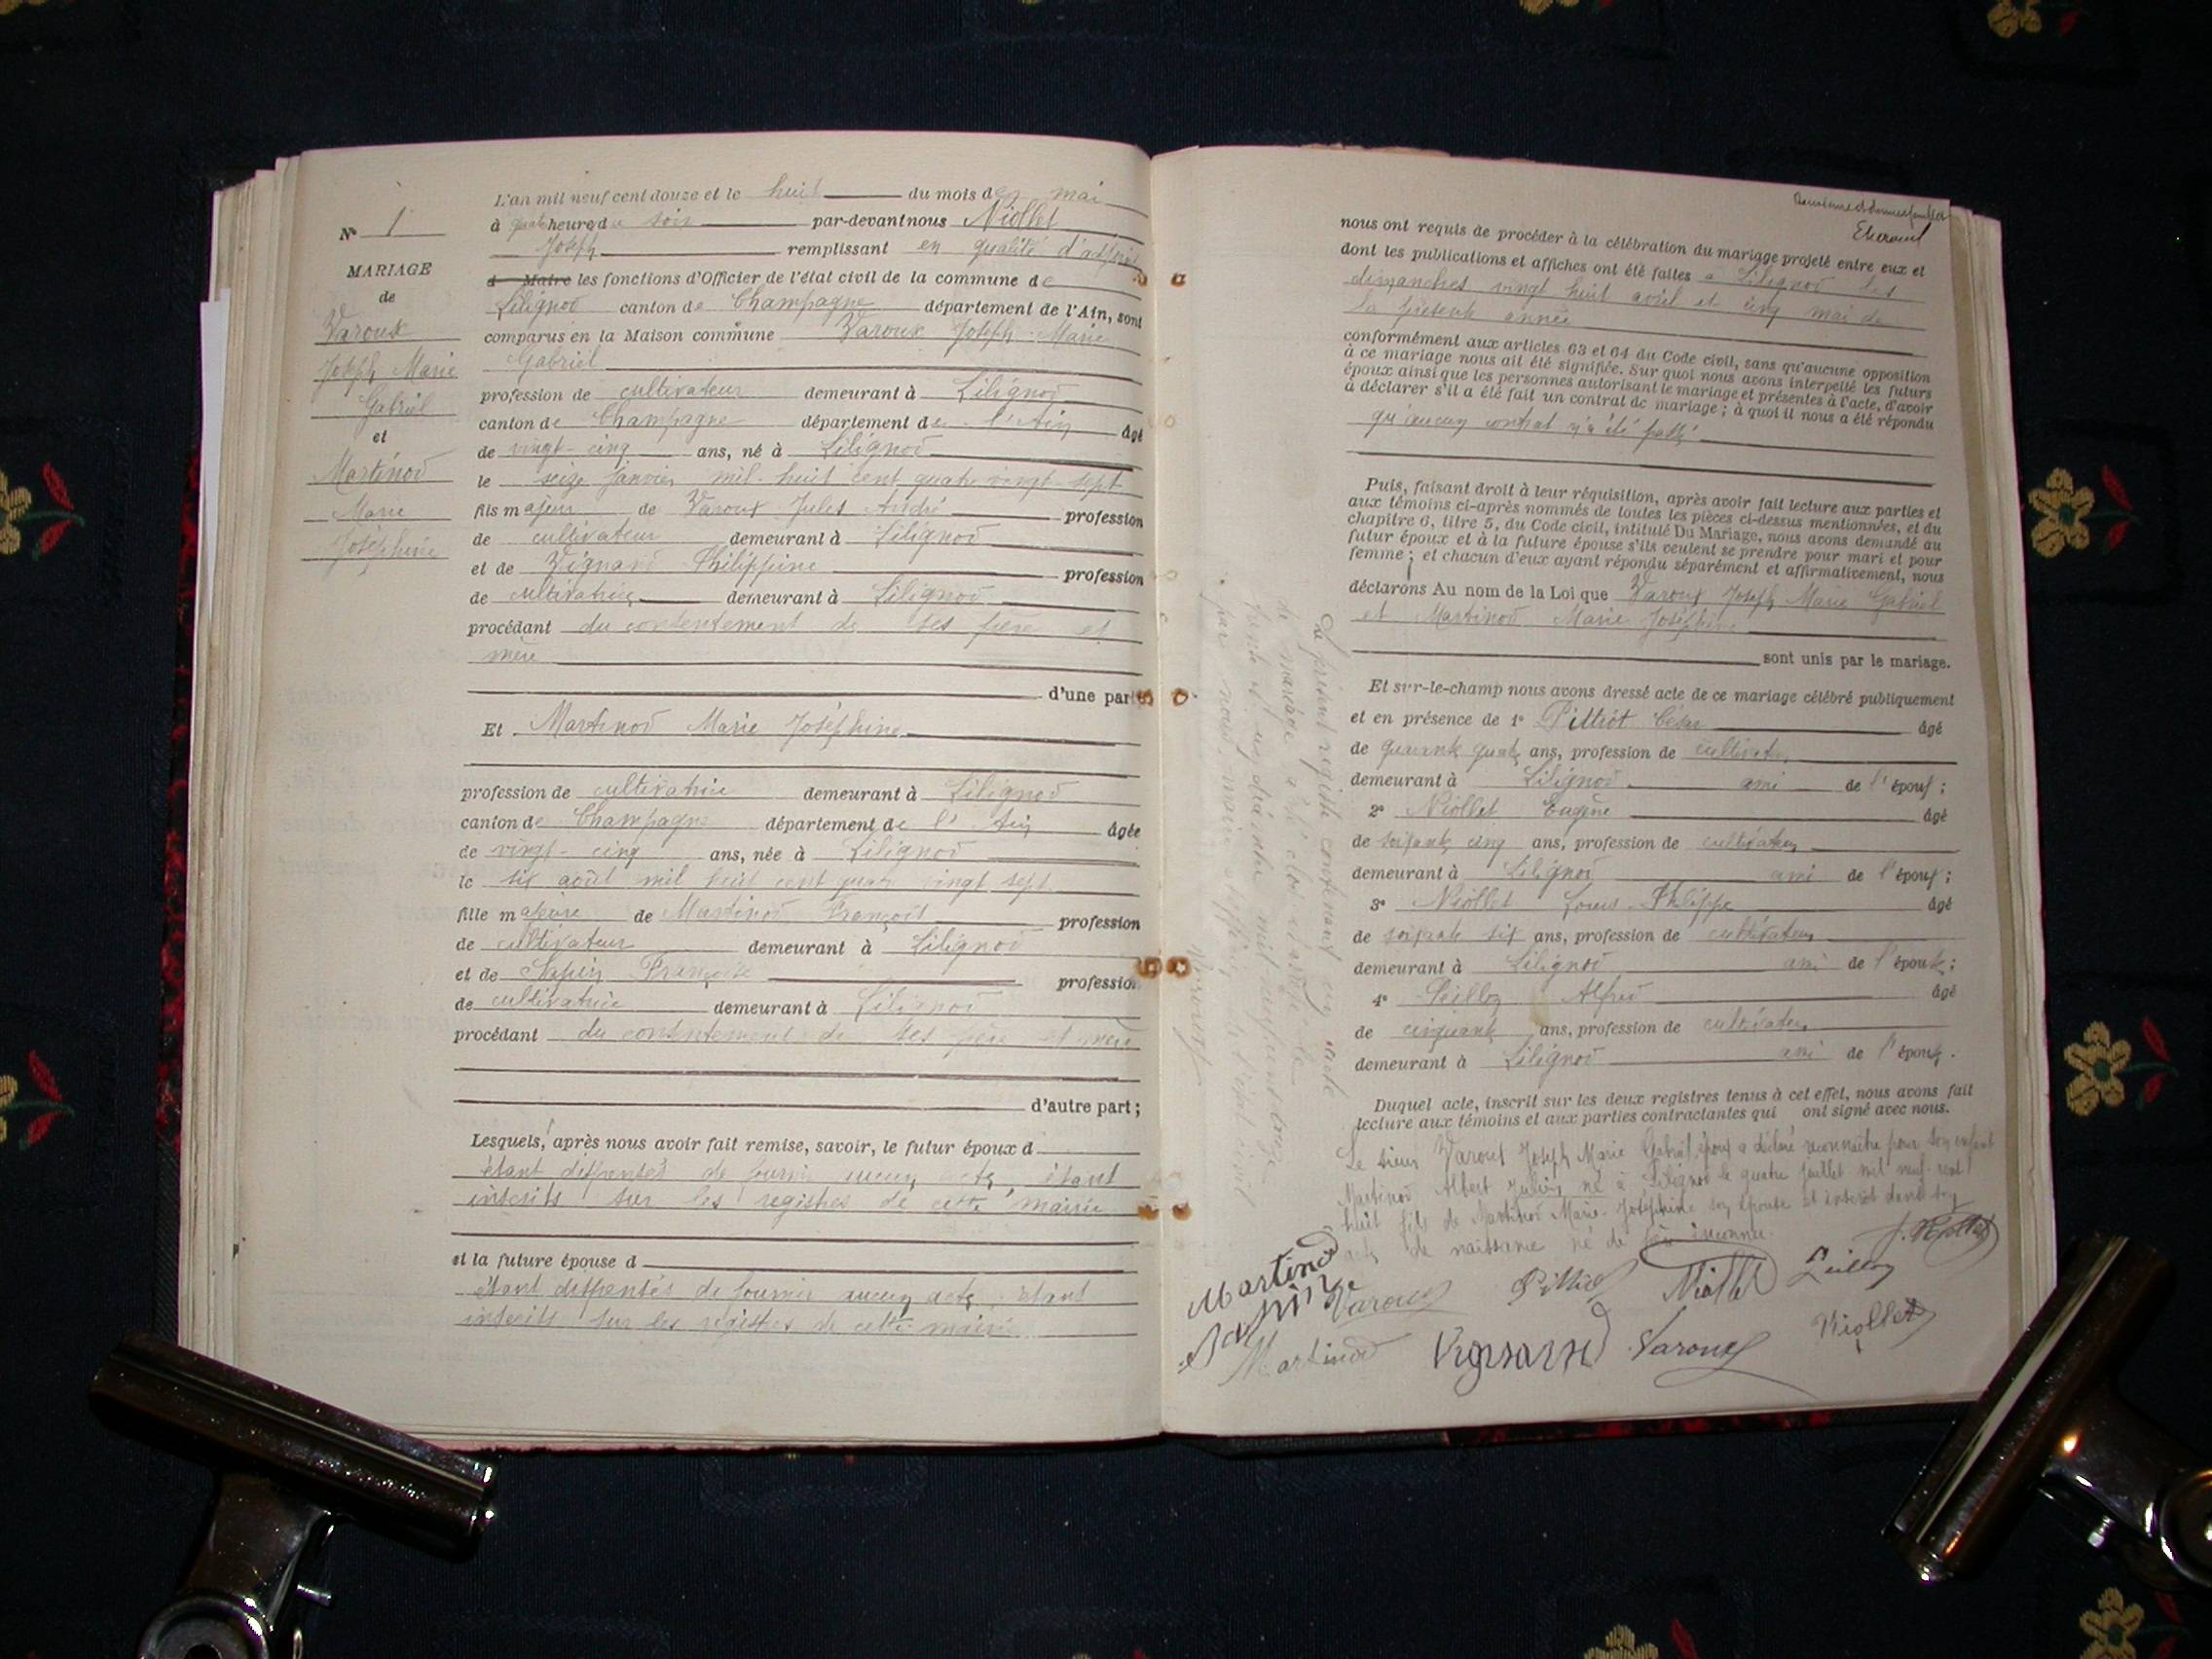 N° 1
MARIAGE
de
Varoux
Joseph Marie
Gabriel
et
Martinod
Marie
Joséphine
L'an mil neuf cent douze et le huit du mois de mai
à quatre heures du soir par-devant nous Niollet
Joseph remplissant en qualité d'adjoint
d Maire les fonctions d'Officier de l'état civil de la commune de
Lilignod canton de Champagne département de l'Ain, sont
comparus en la Maison commune Varoux Joseph Marie
Gabriel
profession de cultivateur demeurant à Lilignod
canton de Champagne département de l'Ain âgé
de vingt-cinq ans, né à Lilignod
le seize janvier mil huit cent quatre vingt sept
fils majeur de Varoux Jules André profession
de cultivateur demeurant à Lilignod
et de Vignard Philippine profession
de cultivatrice demeurant à Lilignod
procédant du consentement de ses père et
mère
d'une part
Et Martinod Marie Joséphine
profession de cultivatrice demeurant à Lilignod
canton de Champagne département de l'Ain âgée
de vingt-cinq ans, née à Lilignod
le six août mil huit cent quatre vingt sept
fille majeure de Martinod François profession
de cultivateur demeurant à Lilignod
et de Sapin Françoise profession
de cultivatrice demeurant à Lilignod
procédant du consentement de ses père et mère
d'autre part ;
Lesquels, après nous avoir fait remise, savoir, le futur époux d
étant dispensés de fournir aucun acte étant
inscrits sur les registres de cette mairie
et la future épouse d
étant dispensés de fournir aucun acte étant
inscrits sur les registres de cette mairie
nous ont requis de procéder à la célébration du mariage projeté entre eux et
dont les publications et affiches ont été faites à Lilignod les
dimanches vingt huit avril et cinq mai de
la présente année
conformément aux articles 63 et 64 du Code civil, sans qu'aucune opposition
à ce mariage nous ait été signifiée. Sur quoi nous avons interpellé les futurs
époux ainsi que les personnes autorisant le mariage et présentes à l'acte, d'avoir
à déclarer s'il a été fait un contrat de mariage ; à quoi il nous a été répondu
qu'aucun contrat n'a été passé
Puis, faisant droit à leur réquisition, après avoir fait lecture aux parties et
aux témoins ci-après nommés de toutes les pièces ci-dessus mentionnées, et du
chapitre 6, titre 5, du Code civil, intitulé Du Mariage, nous avons demandé au
futur époux et à la future épouse s'ils veulent se prendre pour mari et pour
femme ; et chacun d'eux ayant répondu séparément et affirmativement, nous
déclarons Au nom de la Loi que Varoux Joseph Marie Gabriel
et Martinod Marie Joséphine
sont unis par le mariage.
Et sur-le-champ nous avons dressé acte de ce mariage célébré publiquement
et en présence de 1° Pittiot César âgé
de quarante quatre ans, profession de cultivateur
demeurant à Lilignod ami de l'époux ;
2° Niollet Eugène âgé
de soixante cinq ans, profession de cultivateur
demeurant à Lilignod ami de l'époux ;
3° Niollet Louis Philippe âgé
de soixante six ans, profession de cultivateur
demeurant à Lilignod ami de l'épouse ;
4° Seilloz Alfred âgé
de cinquante ans, profession de cultivateur
demeurant à Lilignod ami de l'épouse.
Duquel acte, inscrit sur les deux registres tenus à cet effet, nous avons fait
lecture aux témoins et aux parties contractantes qui ont signé avec nous.
Le sieur Varoux Joseph Marie Gabriel époux a déclaré reconnaître pour son enfant
Martinod Albert Julien né à Lilignod le quatre juillet mil neuf cent
huit fils de Martinod Marie Joséphine son épouse et inscrit dans son
acte de naissance né de père inconnu.
Martinod Varoux Pittiot Niollet Seilloz J. Niollet
Sapin
Martinod Vignard Varoux Niollet
Le présent registre contenant un acte
de mariage a été clos et arrêté le
trente et un décembre mil neuf cent douze
par nous, maire officier de l'état civil
Varoux